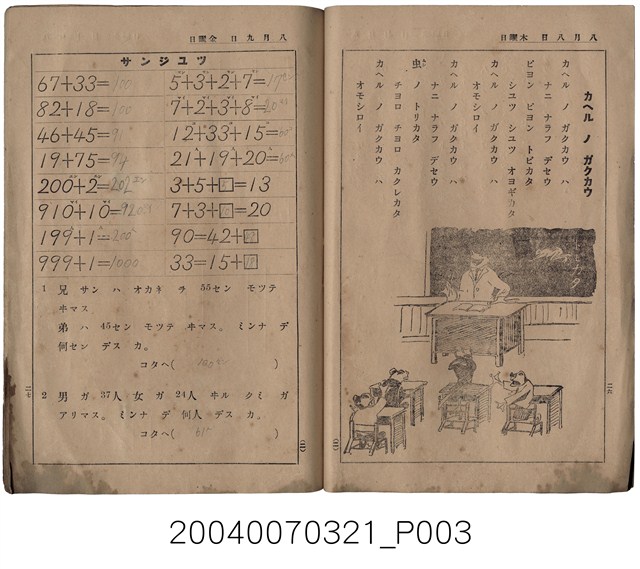 八月八日　木曜日
カヘル ノ ガクカウ
カヘル ノ ガクカウ ハ
ナニ ナラフ デセウ
ピヨン ピヨン トビカタ
シユツ シユツ オヨギカタ
カヘル ノ ガクカウ ハ
オモシロイ
カヘル ノ ガクカウ ハ
ナニ ナラフ デセウ
虫 ノ トリカタ
チヨロ チヨロ カクレカタ
カヘル ノ ガクカウ ハ
オモシロイ
八月九日　金曜日
サンジユツ
67+33=100
82+18=100
46+45=91
19+75=94
200+2=202
910+10=920
199+1=200
999+1=1000
5+3+2+7=17
7+2+3+8=20
12+33+15=60
21+19+20=60
3+5+□=13
7+3+□=20
90=42+□
33=15+□
1 兄 サン ハ オカネ ヲ 55セン モツテ
ヰマス
弟 ハ 45セン モツテ ヰマス。ミンナ デ
何セン デス カ。
コタヘ( 100セン )
2 男 ガ 37人 女 ガ 24人 ヰル クミ ガ
アリマス。ミンナ デ 何人 デス カ。
コタヘ( 61 )
20040070321_P003